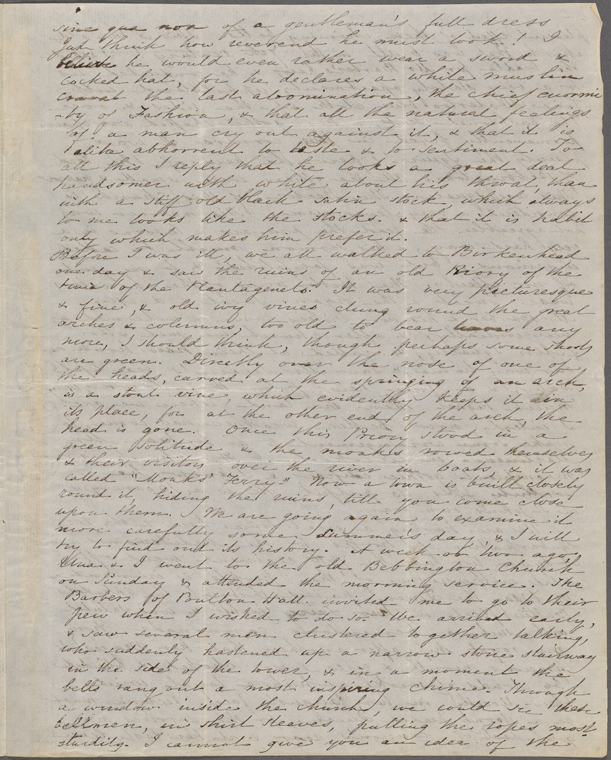 sine qua non of a gentleman's full dress
Just think how reverend he must look! I
believe he would even rather wear a sword &
cocked hat, for he declares a white muslin
cravat the last abomination, the chief enormi
-ty of Fashion, & that all the natural feelings
of a man cry out against it, & that it is
alike abhorrent to taste & to sentiment. To
all this I reply that he looks a great deal
handsomer with white about his throat, than
with a stiff old black satin stock, which always
to me looks like the stocks. & that it is habit
only which makes him prefer it.
Before I was ill, we all walked to Birkenhead
one day & saw the ruins of an old Priory of the
time of the Plantagenets. It was very picturesque
& fine, & old ivy vines clung round the great
arches & columns, too old to bear leaves any
more, I should think, though perhaps some shoots
are green. Directly over the nose of one of
the heads, carved at the springing of an arch,
is a stout vine which evidently keeps it in
its place, for at the other end of the arch, the
head is gone. Once this Priory stood in a
green solitude & the monks rowed themselves
& their visitors over the river in boats, & it was
called "Monks' Ferry" Now a town is built closely
round it, hiding the ruins, till you come close
upon them. We are going again to examine it
more carefully some summer's day, & I will
try to find out its history. A week or two ago,
Una & I went to the old Bebbington Church
on Sunday & attended the morning service. The
Barbers of Poulton Hall invited me to go to their
pew when I wished to do so. We arrived early,
& saw several men clustered together talking,
who suddenly hastened up a narrow stone stairway
in the side of the tower, & in a moment the
bells rang out a most inspiring chime. Through
a window inside the church, we could see these
bellmen, in shirt sleeves, pulling the ropes most
sturdily. I cannot give you an idea of the